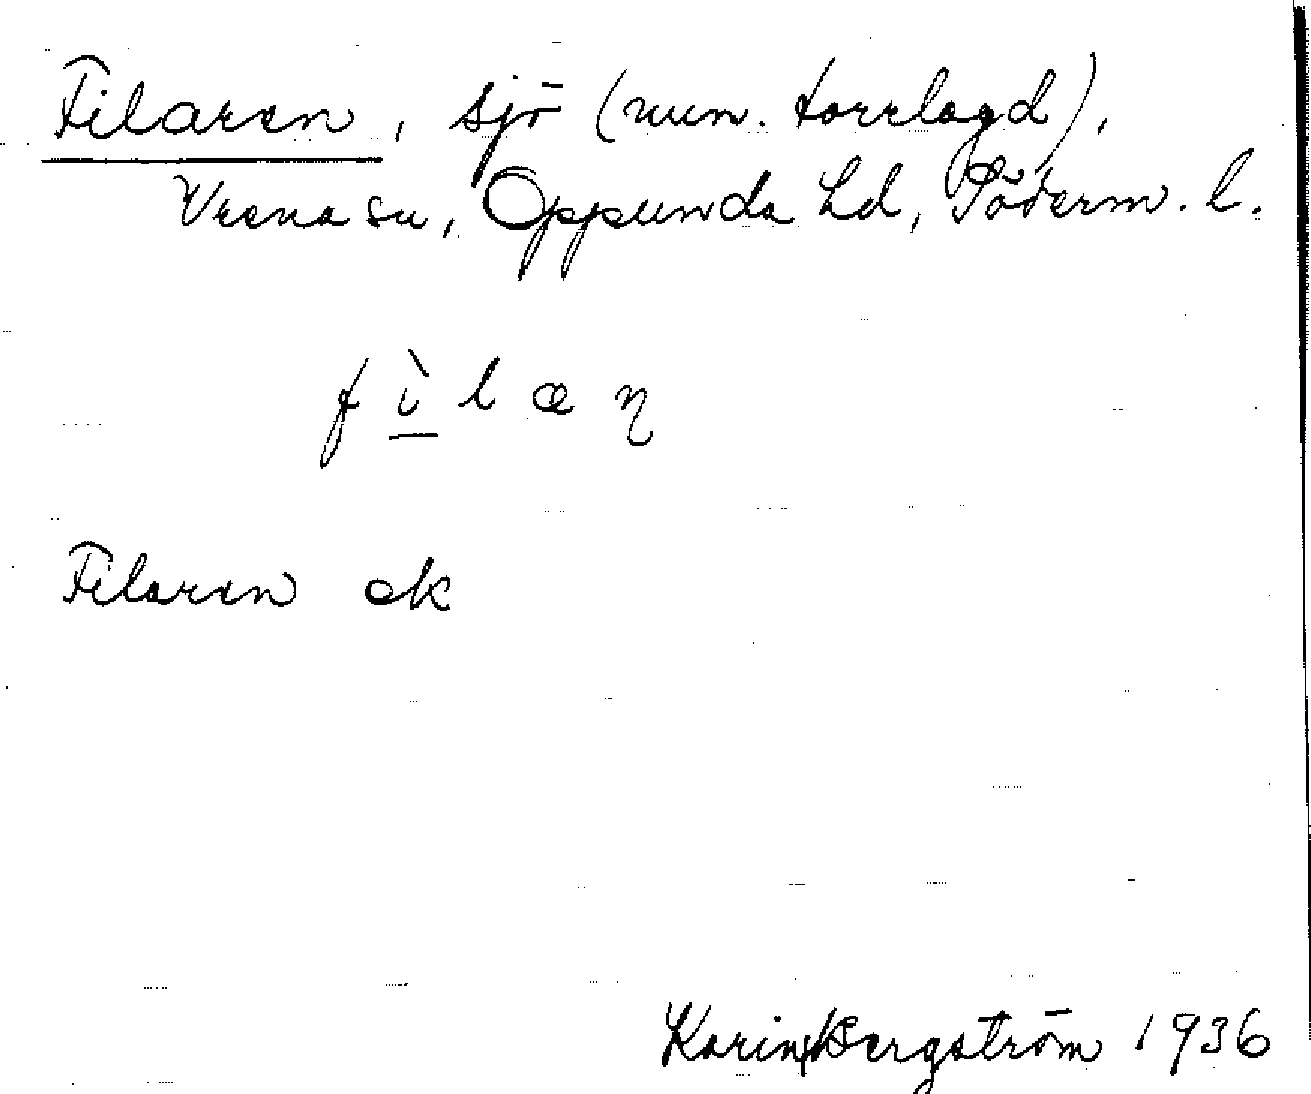 Filaren, sjö (num. torrlagd),
Vrena sn, Oppunda hd, Söderm. l.
f ì l æ ɳ
Filaren ek
Karin Bergström 1936